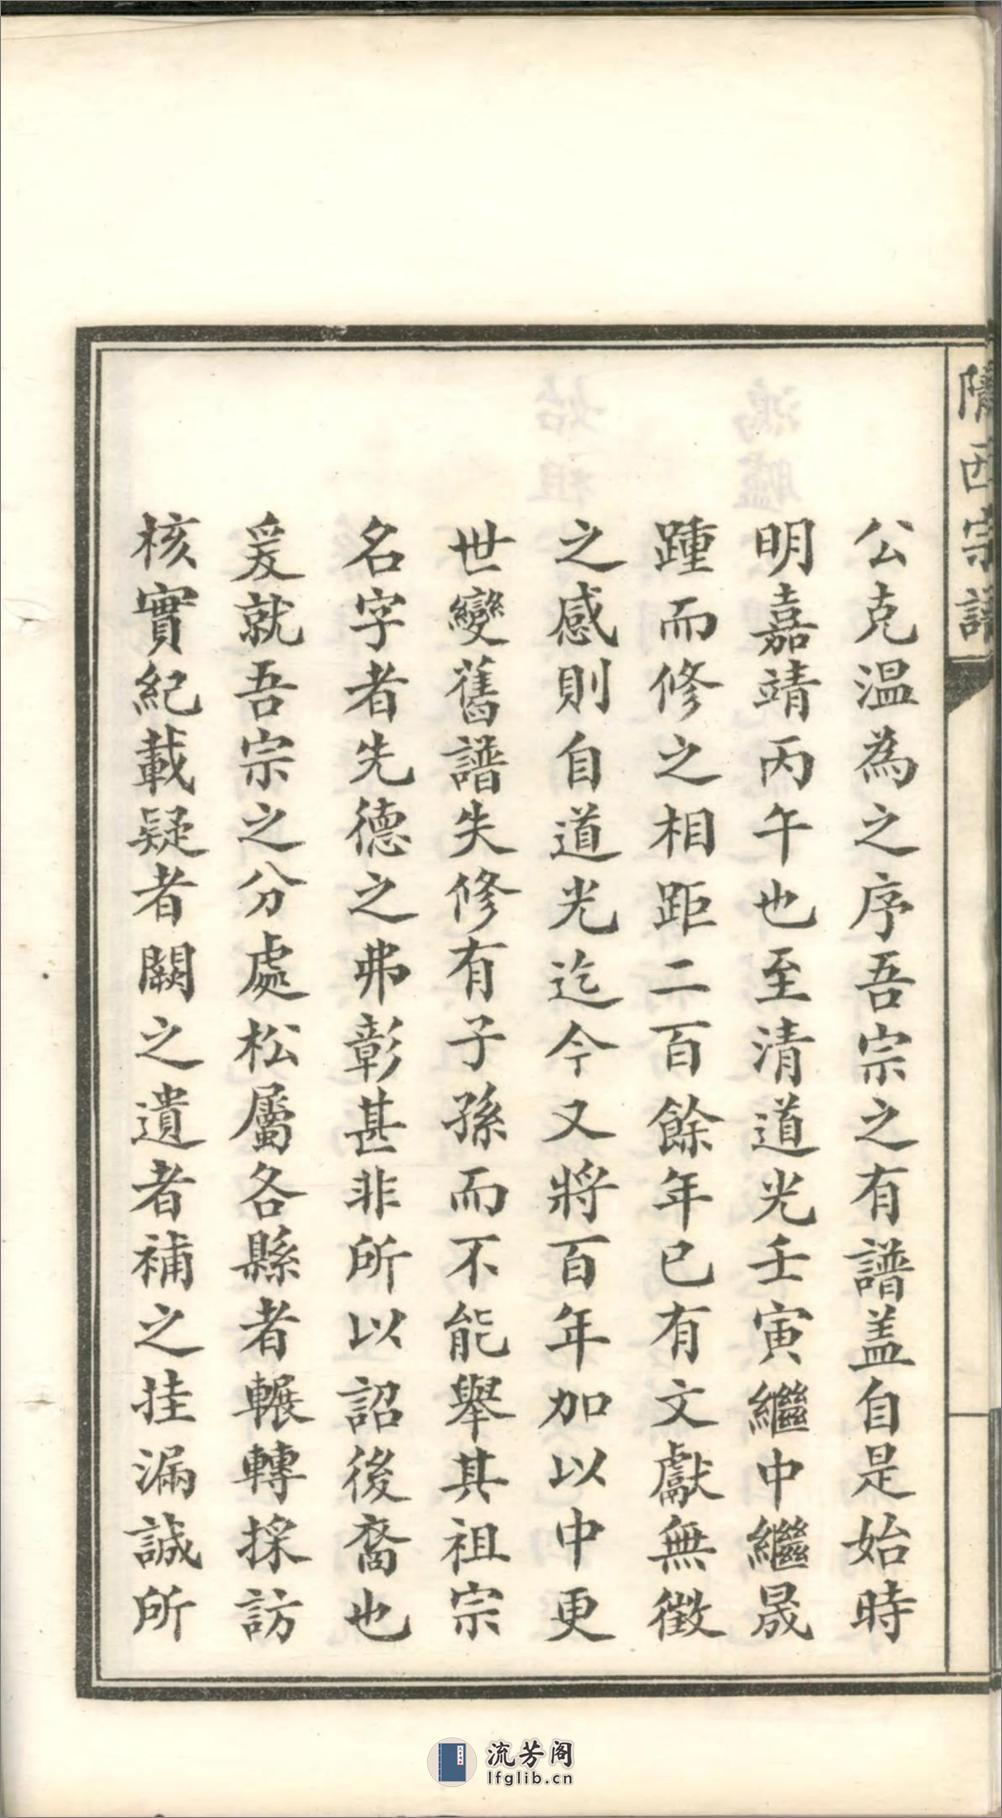 隴西宗譜
公克溫為之序吾宗之有譜盖自是始時
明嘉靖丙午也至清道光壬寅繼中繼晟
踵而修之相距二百餘年已有文獻無徵
之感則自道光迄今又將百年加以中更
世變舊譜失修有子孫而不能舉其祖宗
名字者先德之弗彰甚非所以詔後裔也
爰就吾宗之分處松屬各縣者輾轉採訪
核實紀載疑者闕之遺者補之挂漏誠所
流芳阁
lfglib.cn